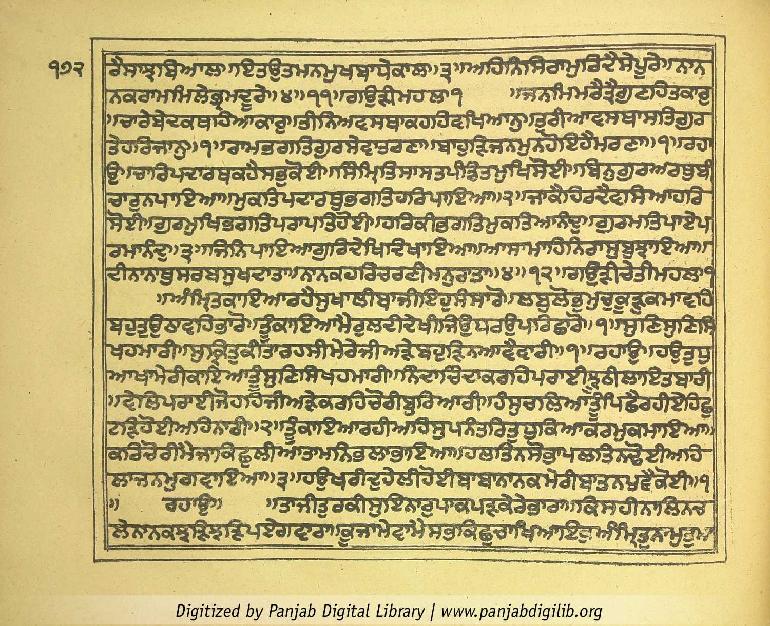 ੧੭੨
ਰੈਸਾਝਬਿਆਲਾ॥ਇਤਉਤਮਨਮੁਖਬਾਧੇਕਾਲ॥੩॥ਅਹਿਨਿਸਿਰਾਮੁਰਿਦੈਸੇਪੂਰੇ॥ਨਾਨ
ਨਕਰਾਮਮਿਲੇਭ੍ਰਮਦੂਰੇ॥੪॥੧੧॥ਗਉੜੀਮਹਲਾ੧ ॥ਜਨਮਿਮਰੈਤ੍ਰੈਗੁਣਹਿਤਕਾਰੁ
॥ਚਾਰੇਬੇਦਕਥਹਿਆਕਾਰੁ॥ਤੀਨਿਅਵਸਥਾਕਹਹਿਵਖਿਆਨੁ॥ਤੁਰੀਆਵਸਥਾਸਤਿਗੁਰ
ਤੇਹਰਿਜਾਨੁ॥੧॥ਰਾਮਭਗਤਿਗੁਰਸੇਵਾਤਰਣਾ॥ਬਾਹੁੜਿਜਨਮੁਨਹੋਇਹੈਮਰਣਾ॥੧॥ਰਹਾ
ਉ॥ਚਾਰਿਪਦਾਰਥਕਹੈਸਭੁਕੋਈ॥ਸਿੰਮ੍ਰਿਤਿਸਾਸਤਪੰਡਿਤਮੁਖਿਸੋਈ॥ਬਿਨੁਗੁਰਅਰਥੁਬੀ
ਚਾਰੁਨਪਾਇਆ॥ਮੁਕਤਿਪਦਾਰਥੁਭਗਤਿਹਰਿਪਾਇਆ॥੨॥ਜਾਕੈਹਿਰਦੈਵਸਿਆਹਰਿ
ਸੋਈ॥ਗੁਰਮੁਖਿਭਗਤਿਪਰਾਪਤਿਹੋਈ॥ਹਰਿਕੀਭਗਤਿਮੁਕਤਿਆਨੰਦੁ॥ਗੁਰਮਤਿਪਾਏਪ
ਰਮਾਨੰਦੁ॥੩॥ਜਿਨਿਪਾਇਆਗੁਰਿਦੇਖਿਦਿਖਾਇਆ॥ਆਸਾਮਾਹਿਨਿਰਾਸੁਬੁਝਾਇਆ॥
ਦੀਨਾਨਾਥੁਸਰਬਸੁਖਦਾਤਾ॥ਨਾਨਕਹਰਿਚਰਣੀਮਨੁਰਾਤਾ॥੪॥੧੨॥ਗਉੜੀਚੇਤੀਮਹਲਾ੧
॥ਅੰਮ੍ਰਿਤਕਾਇਆਰਹੈਸੁਖਾਲੀਬਾਜੀਇਹੁਸੰਸਾਰੋ॥ਲਬੁਲੋਭੁਮੁਚੁਕੂੜੁਕਮਾਵਹਿ
ਬਹੁਤੁਉਠਾਵਹਿਭਾਰੋ॥ਤੂੰਕਾਇਆਮੈਰੁਲਦੀਦੇਖੀਜਿਉਧਰਉਪਰਿਛਾਰੋ॥੧॥ਸੁਣਿਸੁਣਿਸਿ
ਖਹਮਾਰੀ॥ਸੁਕ੍ਰਿਤੁਕੀਤਾਰਹਸੀਮੇਰੇਜੀਅੜੇਬਹੁੜਿਨਆਵੈਵਾਰੀ॥੧॥ਰਹਾਉ॥ਹਉਤੁਧੁ
ਆਖਾਮੇਰੀਕਾਇਆਤੂੰਸੁਣਿਸਿਖਹਮਾਰੀ॥ਨਿੰਦਾਚਿੰਦਾਕਰਹਿਪਰਾਈਝੂਠੀਲਾਇਤਬਾਰੀ
॥ਵੇਲਿਪਰਾਈਜੋਹਹਿਜੀਅੜੇਕਰਹਿਚੋਰੀਬੁਰਿਆਰੀ॥ਹੰਸੁਚਲਿਆਤੂੰਪਿਛੈਰਹੀਏਹਿਛੁ
ਟੜਿਹੋਈਅਹਿਨਾਰੀ॥੨॥ਤੂੰਕਾਇਆਰਹੀਅਹਿਸੁਪਨੰਤਰਿਤੁਧੁਕਿਆਕਰਮਕਮਾਇਆ॥
ਕਰਿਚੋਰੀਮੈਜਾਕਿਛੁਲੀਆਤਾਮਨਿਭਲਾਭਾਇਆ॥ਹਲਤਿਨਸੋਭਾਪਲਤਿਨਢੋਈਅਹਿ
ਲਾਜਨਮੁਗਵਾਇਆ॥੩॥ਹਉਖਰੀਦੁਹੇਲੀਹੋਈਬਾਬਾਨਾਨਕਮੇਰੀਬਾਤਨਪੁਛੈਕੋਈ॥੧
॥ ਰਹਾਉ॥ ॥ਤਾਜੀਤੁਰਕੀਸੁਇਨਾਰੁਪਾਕਪੜਕੇਰੇਭਾਰਾ॥ਕਿਸਹੀਨਾਲਿਨਚ
ਲੇਨਾਨਕਝੜਿਝੜਿਪਏਗਵਾਰਾ॥ਕੂਜਾਮੇਵਾਮੈਸਭਕਿਛੁਚਾਖਿਆਇਕੁਅੰਮ੍ਰਿਤੁਨਾਮੁਤੁਮਾ
Digitized by Panjab Digital Library | www.panjabdigilib.org